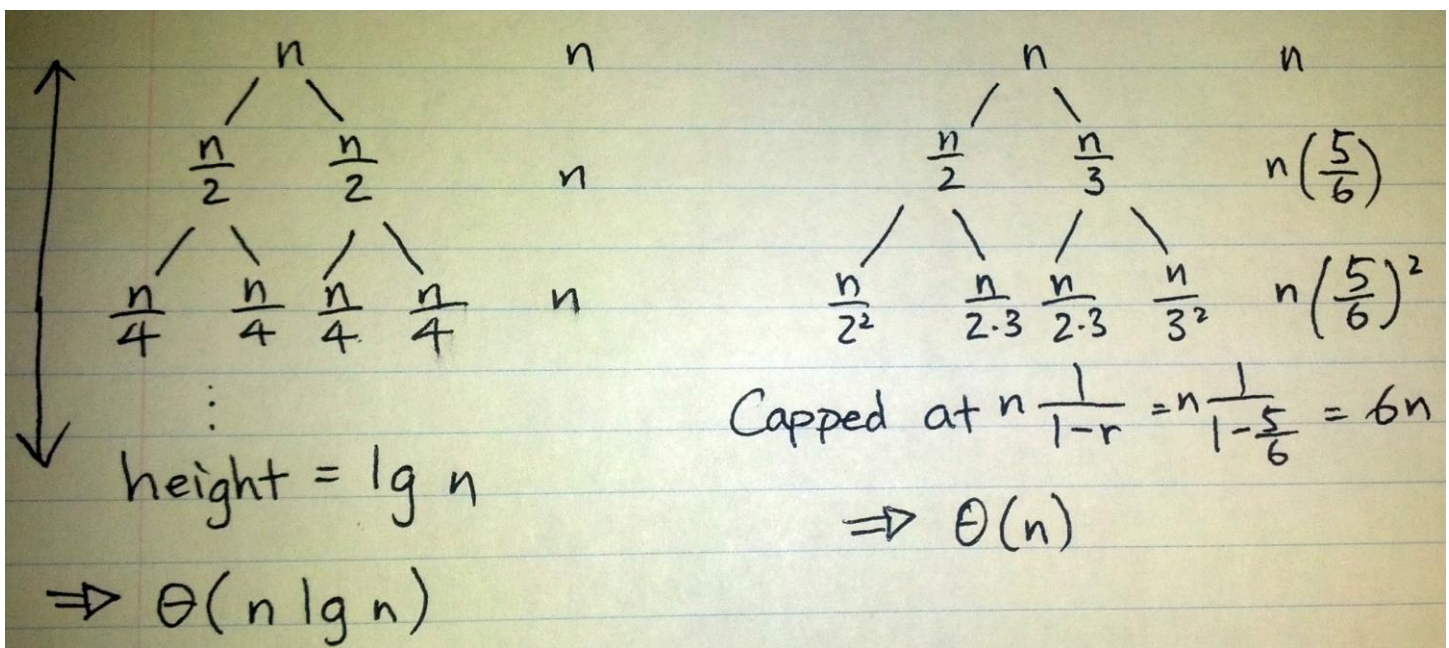 n n
n/2 n/2 n
n/4 n/4 n/4 n/4 n
⋮
height = lg n
⇒ Θ(n lg n)
n n
n/2 n/3 n(5/6)
n/2² n/2·3 n/2·3 n/3² n(5/6)²
Capped at n 1/(1-r) = n 1/(1-5/6) = 6n
⇒ Θ(n)